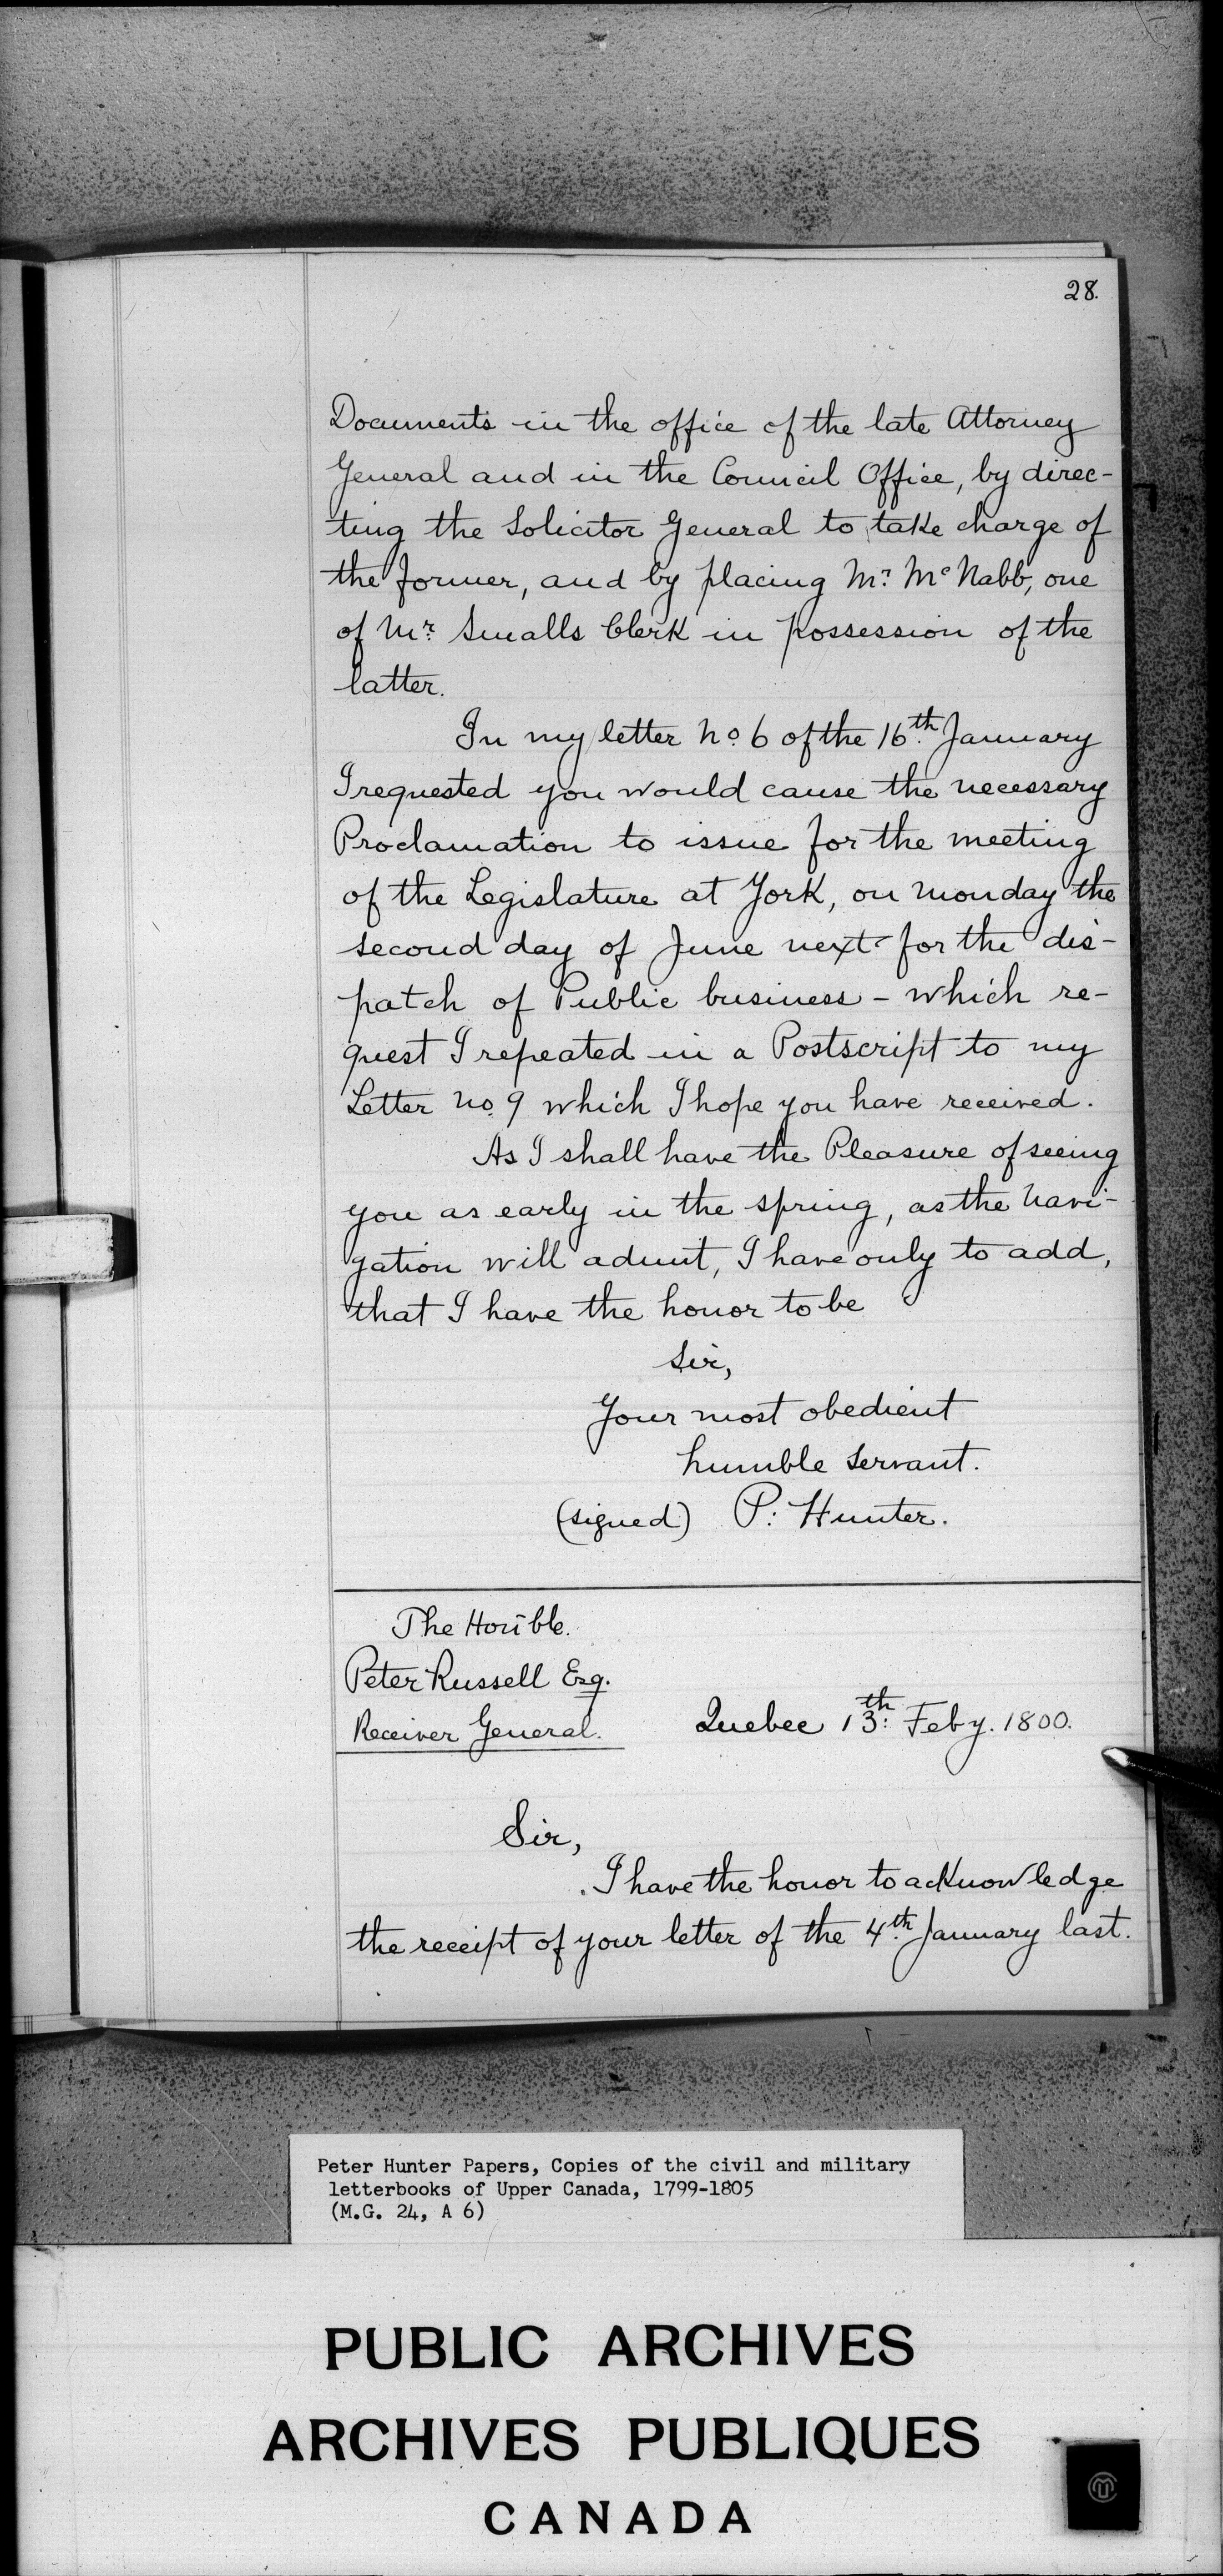 28.
Documents in the office of the late Attorney
General and in the Council Office, by direc-
ting the Solicitor General to take charge of
the former, and by placing Mr. McNabb, one
of Mr. Smalls Clerk in possession of the
latter.
In my letter No. 6 of the 16th. January
I requested you would cause the necessary
Proclamation to issue for the meeting
of the Legislature at York, on Monday the
second day of June next for the dis-
patch of Public business - which re-
quest I repeated in a Postscript to my
Letter No. 9 which I hope you have received.
As I shall have the Pleasure of seeing
you as early in the spring, as the Navi-
gation will admit, I have only to add,
that I have the honor to be
Sir,
Your most obedient
humble Servant.
(signed) P: Hunter.
The Honble.
Peter Russell Esq.
Receiver General. Quebec 13th: Feby. 1800.
Sir,
I have the honor to acknowledge
the receipt of your letter of the 4th. January last.
Peter Hunter Papers, Copies of the civil and military
letterbooks of Upper Canada, 1799-1805
(M.G. 24, A 6)
PUBLIC ARCHIVES
ARCHIVES PUBLIQUES
CANADA